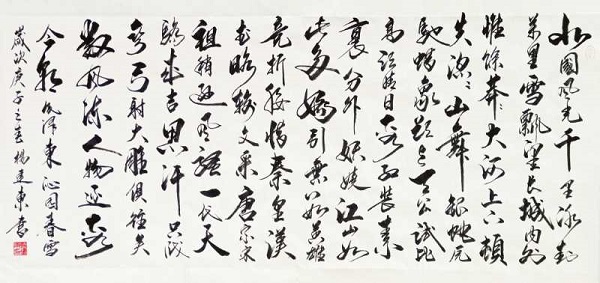 北國風光千里冰封
萬里雪飄望長城內外
惟餘莽莽大河上下頓
失滔滔山舞銀蛇原
馳蠟象欲與天公試比
高須晴日看紅裝素
裹分外妖嬈江山如
此多嬌引無數英雄
競折腰惜秦皇漢
武略輸文采唐宗宋
祖稍遜風騷一代天
驕成吉思汗只識
彎弓射大雕俱往矣
數風流人物還看
今朝 毛澤東 沁園春雪
歲次庚子之春楊建東書